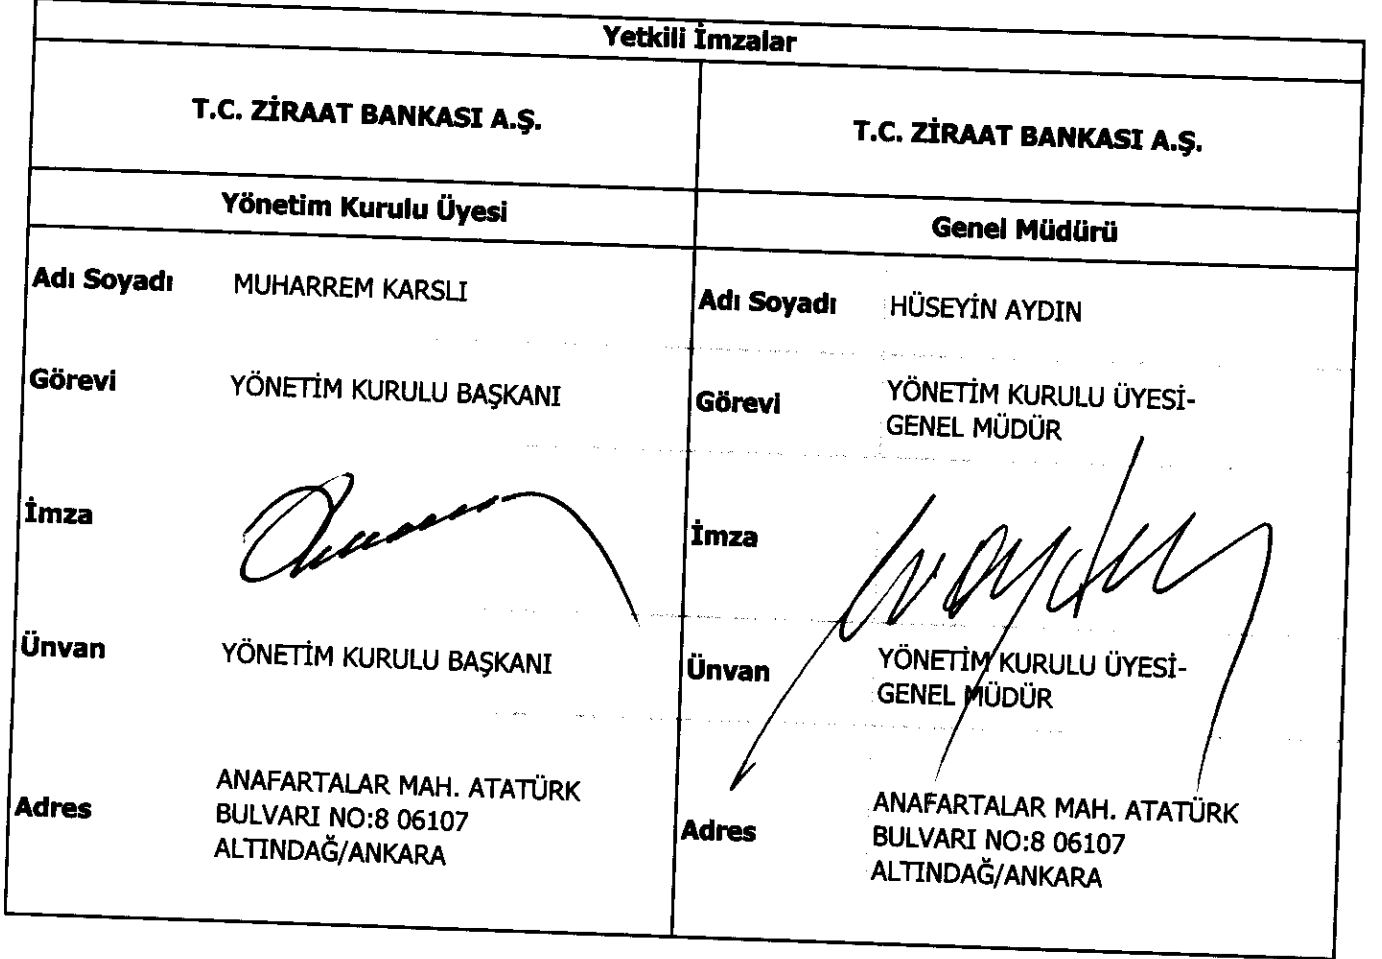 Yetkili İmzalar
T.C. ZİRAAT BANKASI A.Ş.
T.C. ZİRAAT BANKASI A.Ş.
Yönetim Kurulu Üyesi
Genel Müdürü
Adı Soyadı MUHARREM KARSLI
Görevi YÖNETİM KURULU BAŞKANI
İmza
Ünvan YÖNETİM KURULU BAŞKANI
Adres ANAFARTALAR MAH. ATATÜRK
BULVARI NO:8 06107
ALTINDAĞ/ANKARA
Adı Soyadı HÜSEYİN AYDIN
Görevi YÖNETİM KURULU ÜYESİ-
GENEL MÜDÜR
İmza
Ünvan YÖNETİM KURULU ÜYESİ-
GENEL MÜDÜR
Adres ANAFARTALAR MAH. ATATÜRK
BULVARI NO:8 06107
ALTINDAĞ/ANKARA